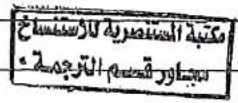 مكتبة المستنصرية للاستنساخ
مجاور قسم الترجمة .